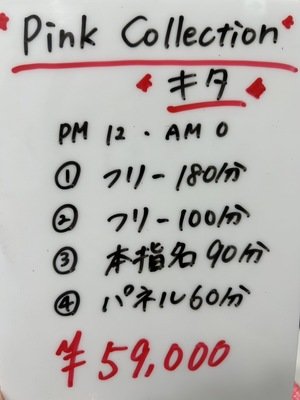 Pink Collection
キタ
PM 12 . AM 0
① フリー 180分
② フリー 100分
③ 本指名 90分
④ パネル 60分
¥59,000